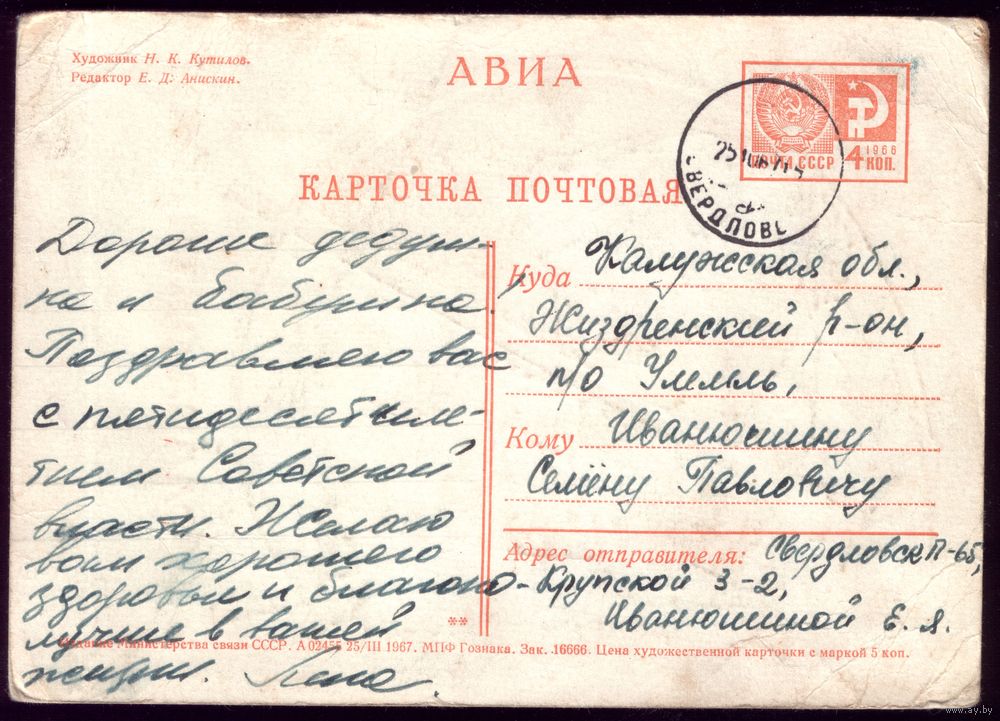 Художник Н. К. Кутилов.
Редактор Е. Д. Анискин.
АВИА
ПОЧТА СССР
1966
4 КОП.
СВЕРДЛОВС
КАРТОЧКА ПОЧТОВАЯ
Дорогие дедуш-
ка и бабушка!
Поздравляю вас
с пятидесятиле-
тием Советской
власти. Желаю
вам хорошего
здоровья и благопо-
лучия в вашей
жизни. Лена.
Куда Калужская обл.,
Жиздренский р-он,
п/о Улемль,
Кому Иванюшину
Семёну Павловичу
Адрес отправителя: Свердловск П-65,
Крупской 3-2,
Иванюшиной Е. Я.
**
Издание Министерства связи СССР. А 02455 25/III 1967. МПФ Гознака. Зак. 16666. Цена художественной карточки с маркой 5 коп.
www.ay.by